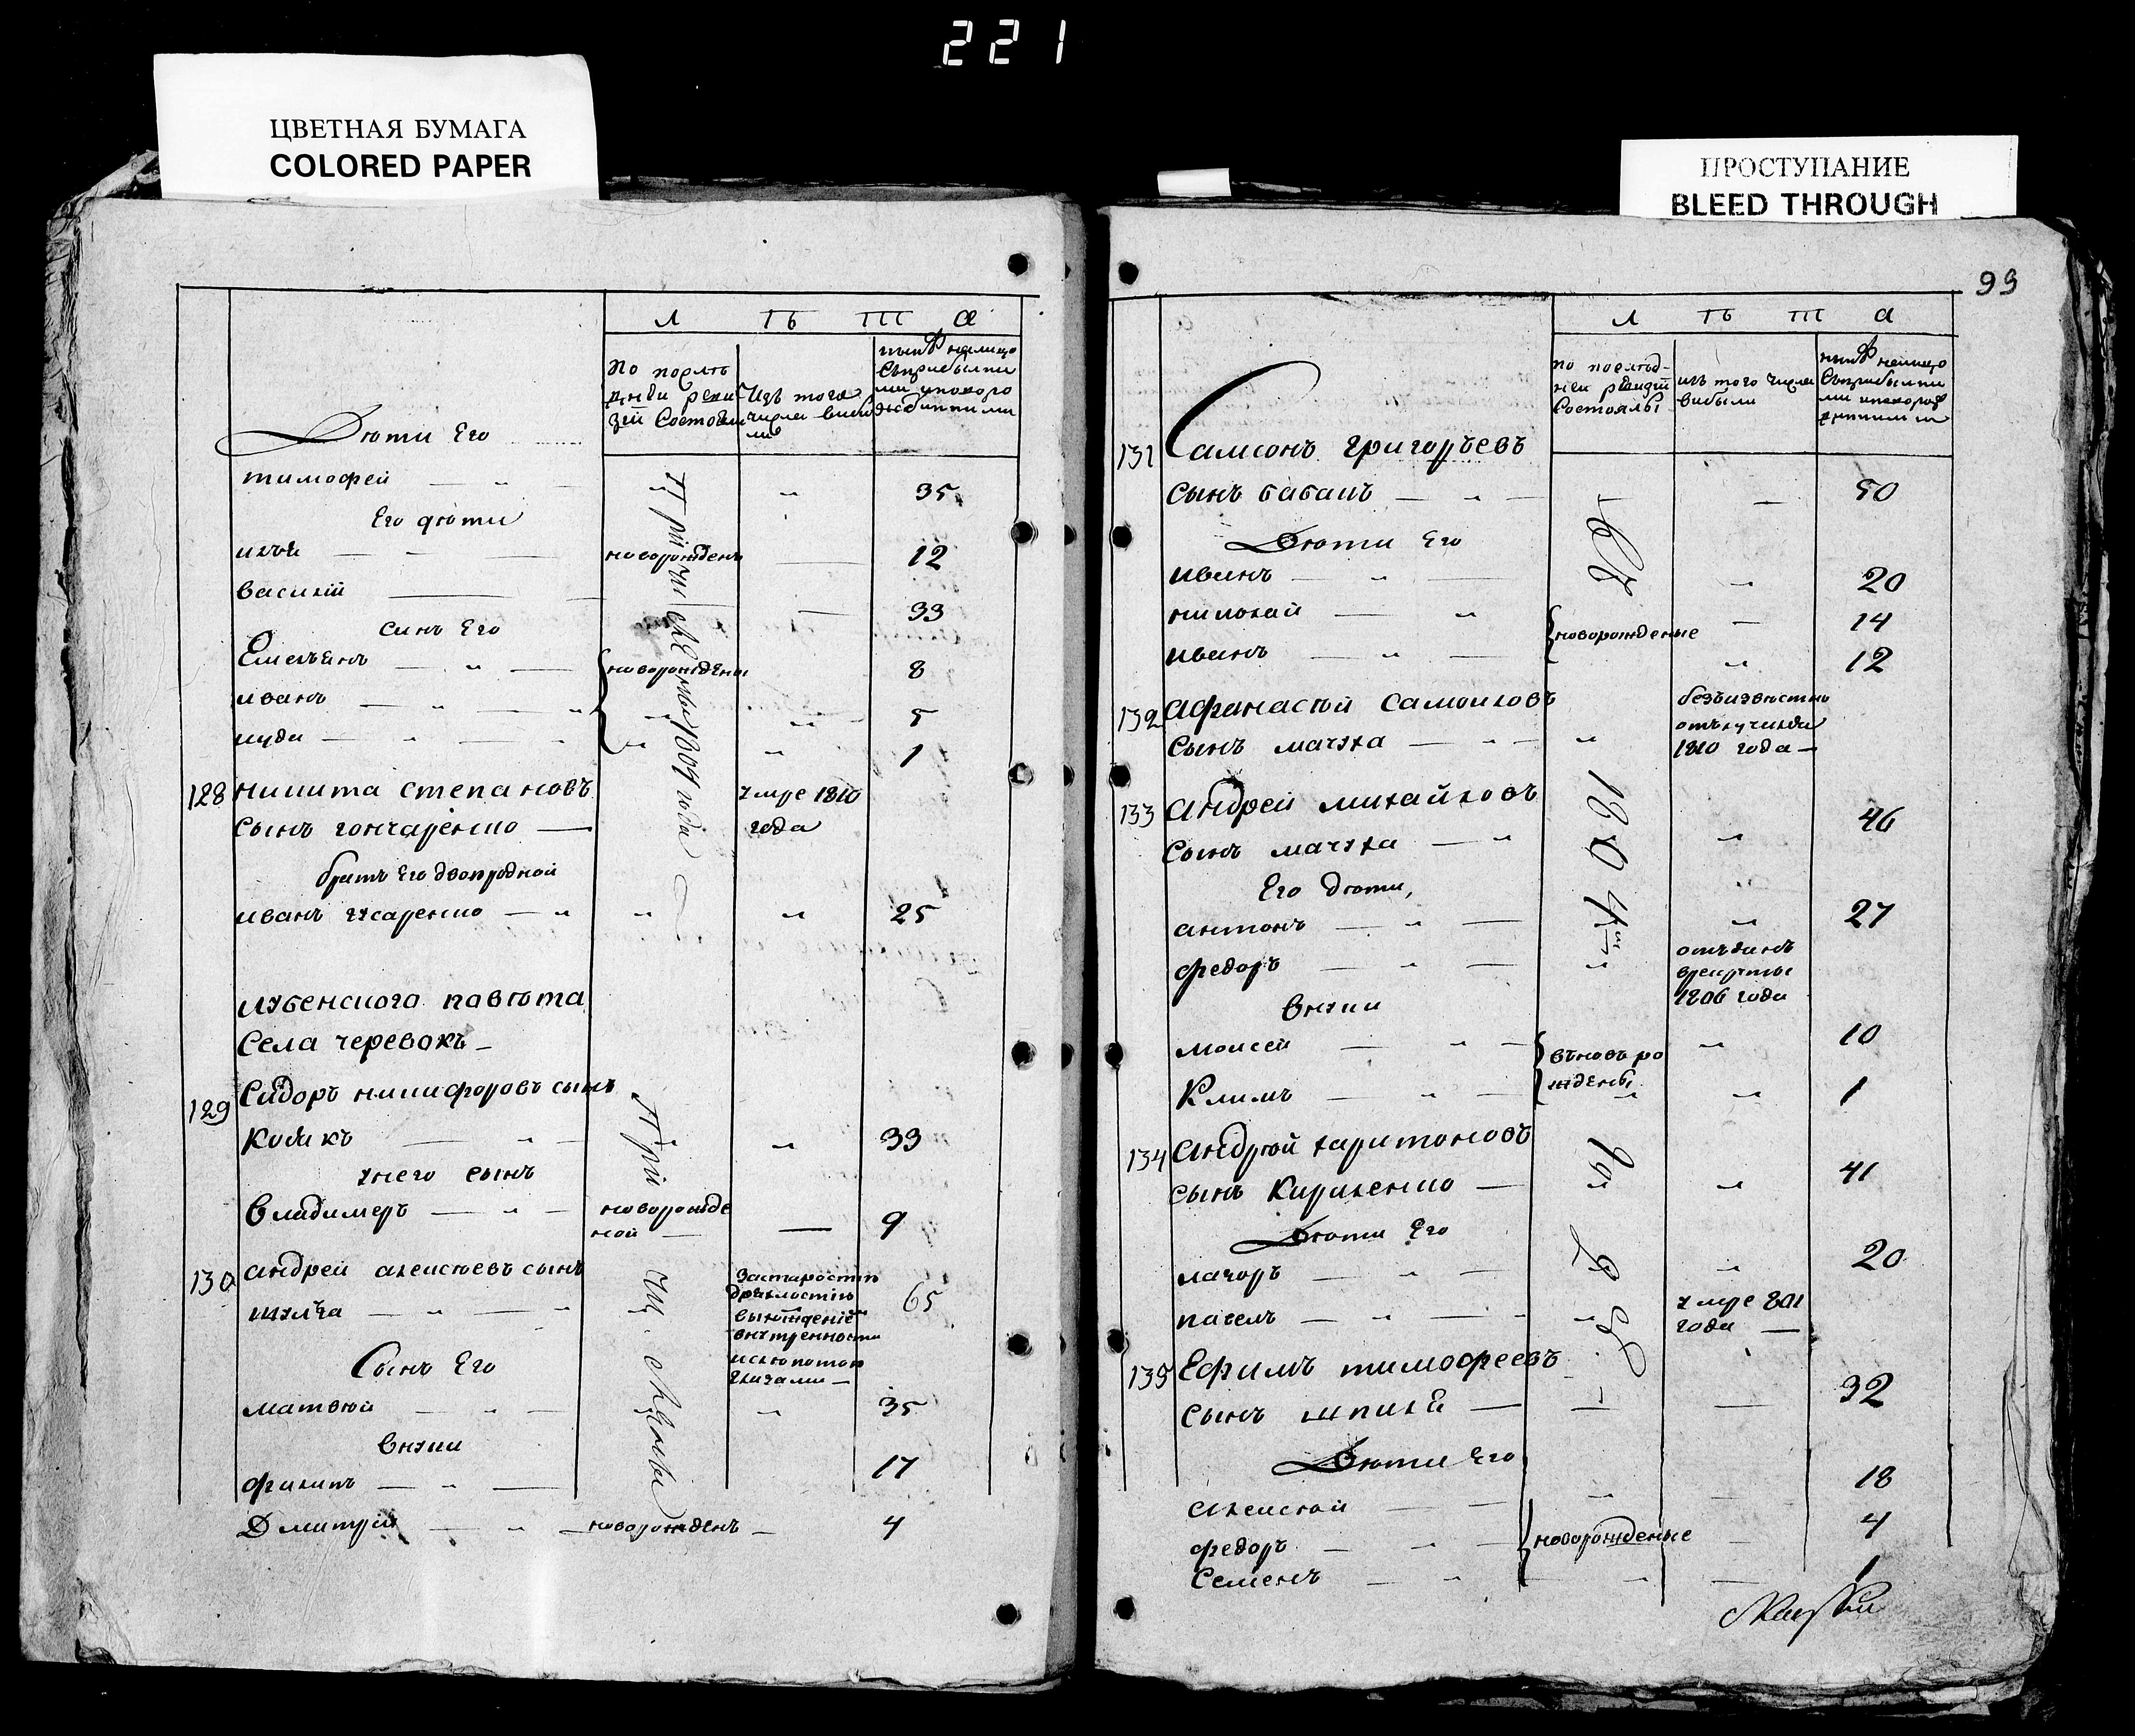 221
ЦВЕТНАЯ БУМАГА
COLORED PAPER
ПРОСТУПАНИЕ
BLEED THROUGH
Л Ѣ Т А
По послѣ
дней реви
зіи состояли
Изъ того
числа выбы
ли
нынѣ налицо
Съ прибылы
ми и новоро
жденными
Дѣти Его
тимофей 35
Его дѣти
илья новорожденъ 12
василій 33
синъ Его
Емельянъ новорождени 8
иванъ 5
1
При 1804 года
128 никита степановъ умре 1810
сынъ гончаренко года
братъ Его двоюродной
иванъ гусаренко 25
лубенского повѣта
Села черевокъ
129 Сидоръ никифоровъ сынъ
33
унего сынъ
Владимеръ новорожде
ной 9
130 андрей алексѣевъ сынъ
шулга 65
за старостію
дряхлостію
глазами
Сынъ Его
матвѣй 35
внуки
филипъ 17
Дмитрій новорожденъ 4
99
Л Ѣ Т А
по послѣд-
ней ревизіи
состоялы
изъ того числа
выбыли
нынѣ налицо
Съ прибылы
ми и новорож
денными
131 Самсонъ григорьевъ
сынъ бабакъ 50
Дѣти Его
иванъ 20
николай новорожденые 14
иванъ 12
132 афанасѣй самойловъ безъизвѣстно
сынъ мачуха отлучился
1810 года
133 андрей михайловъ 46
сынъ мачуха
1804
Его дѣти,
антонъ 27
федоръ отъданъ
врекруты
1806 года
внуки
моисей 10
вьновъ ро
ждены
Климъ 1
134 андрѣй харитоновъ 41
сынъ Кириленко
Дѣти Его
20
павелъ умре 801
года
135 Ефимъ тимофеевъ 32
сынъ
Дѣти Его
алексѣй 18
федоръ новорожденые 4
Семенъ 1